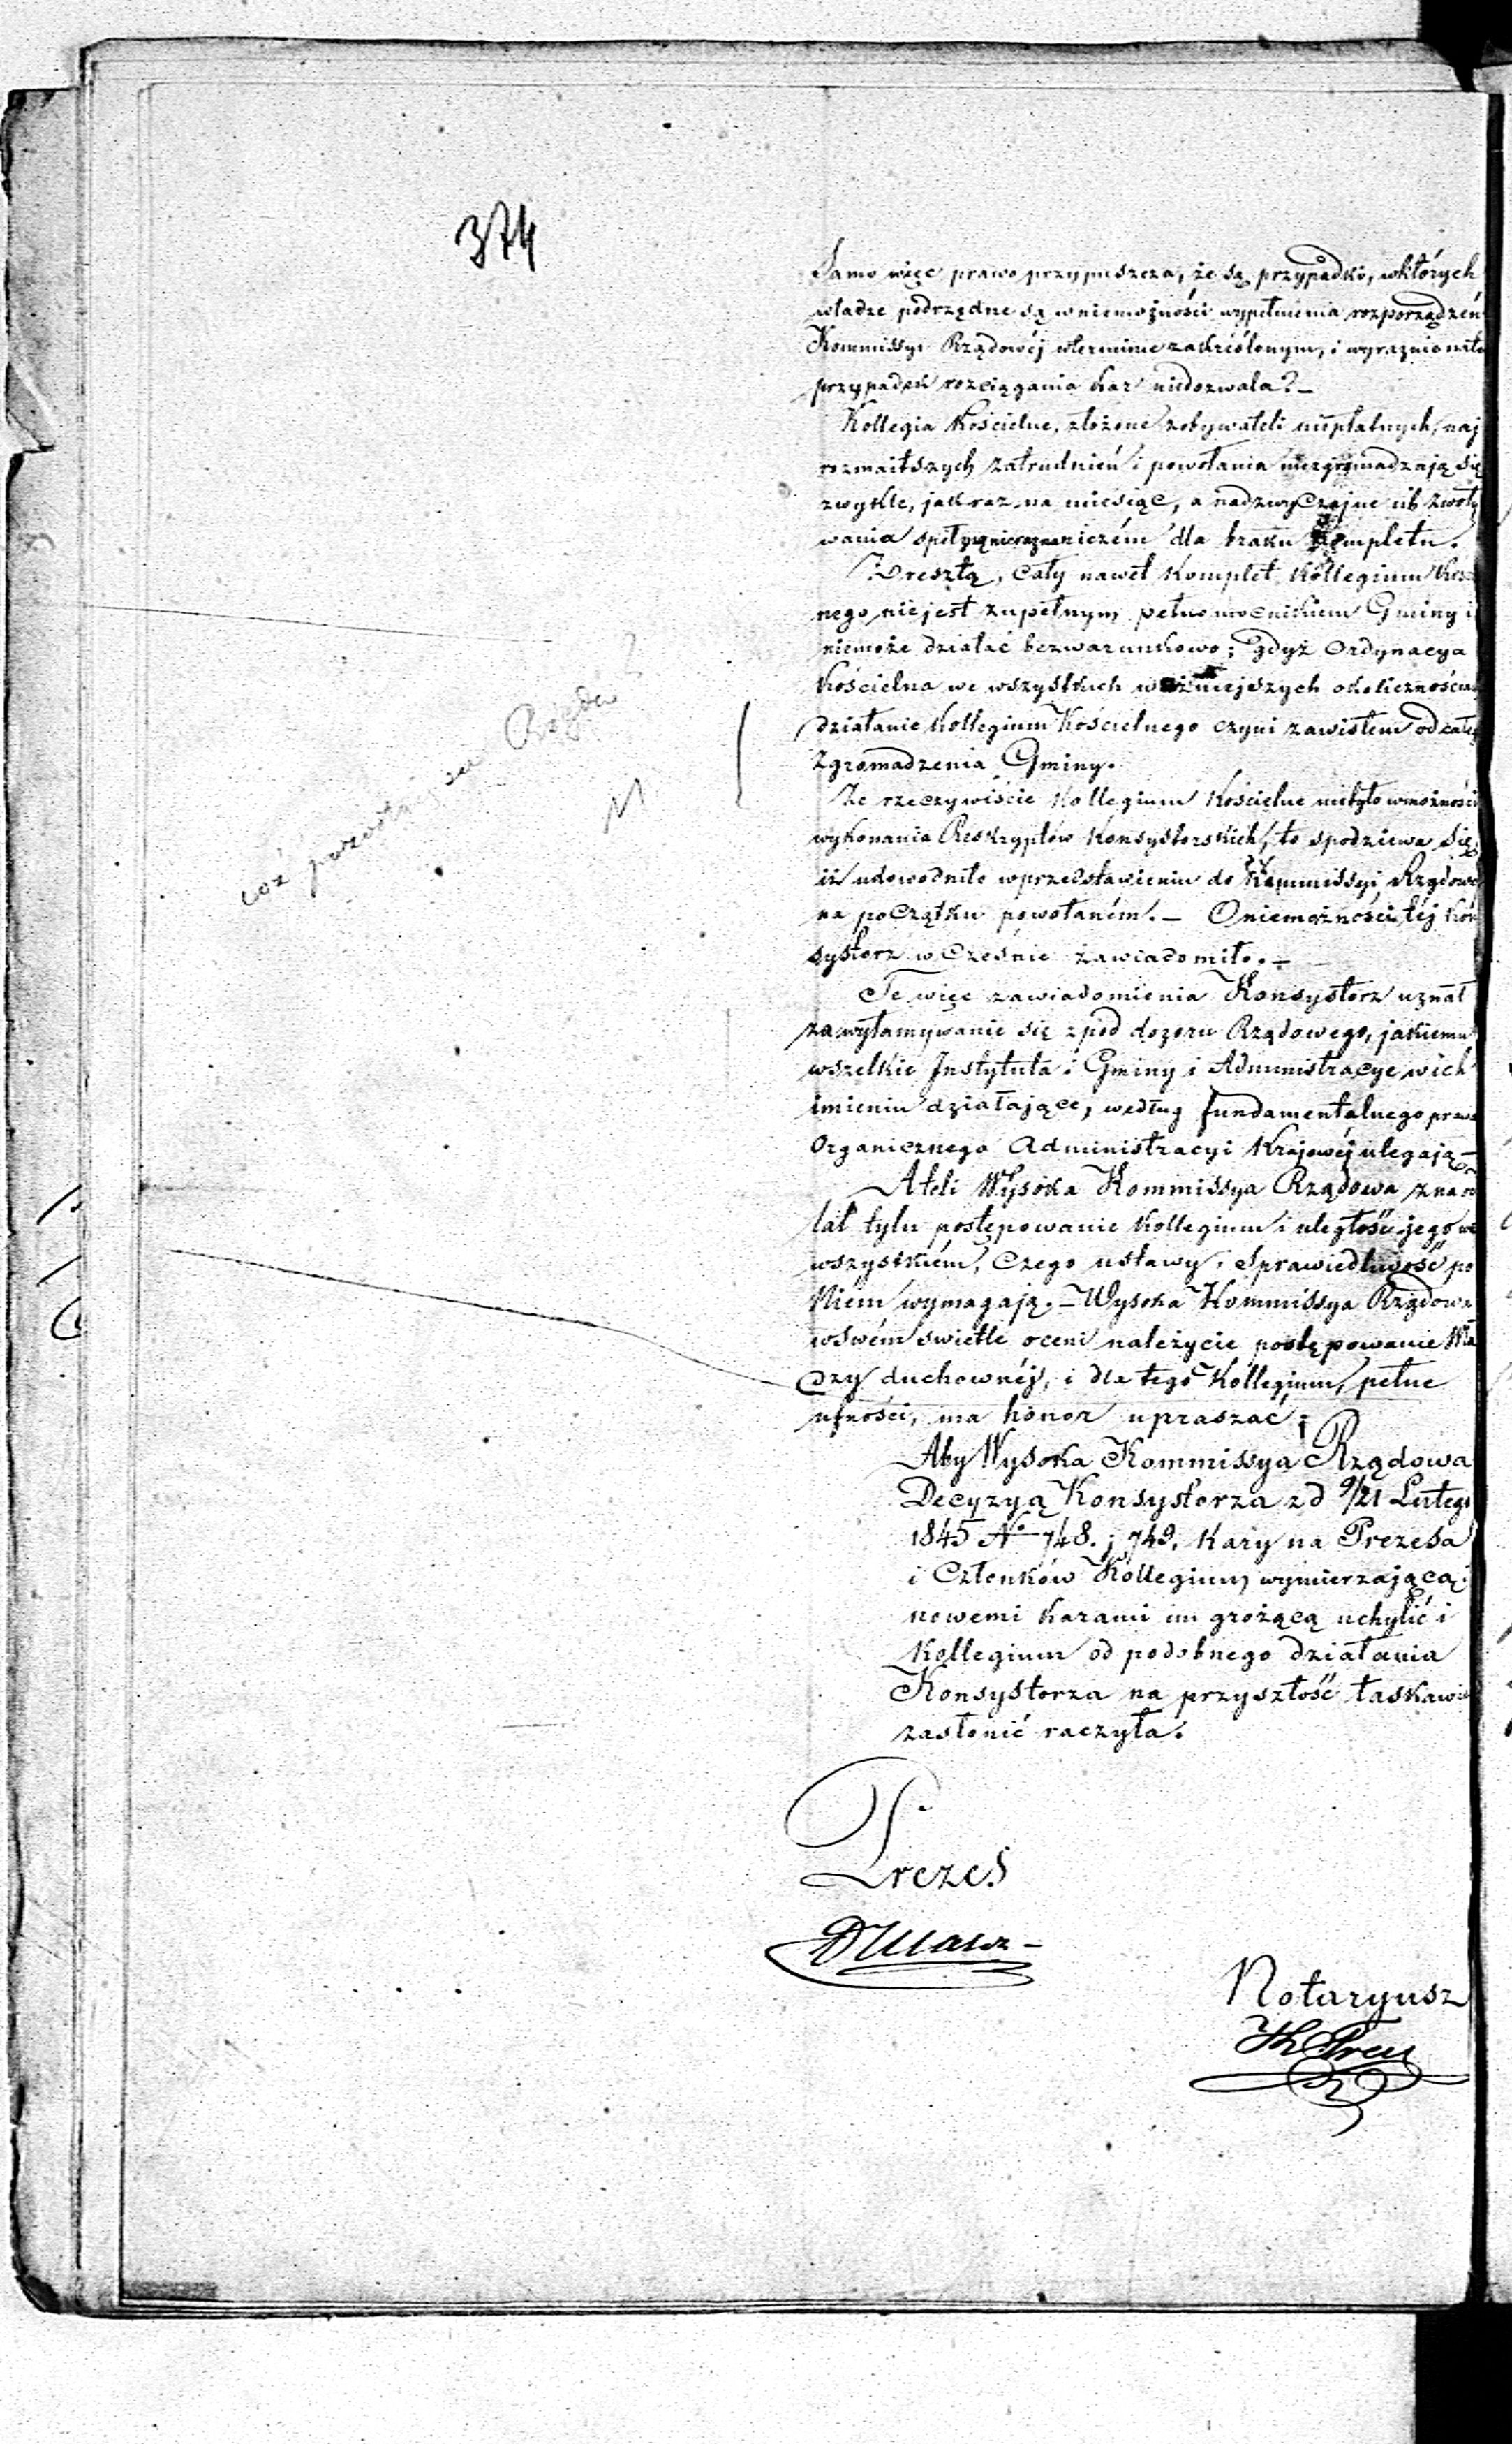 374
Samo więc prawo przypuszcza, że są przypadki, wktórych
władze podrzędne są wniemożności wypełnienia rozporządzeń
Kommissyi Rządowéj wterminie zakréślonym, i wyraznie na
przypadek rozciągania kar niedozwala? –
Kollegia Kościelne, złożone zobywateli niepłatnych, naj
rozmaitszych zatrudnień i powołania niezgromadzają się
zwykle, jak raz na miesiąc, a nadzwyczajne ich zwoły
wania spełzną nieraz na niczém dla braku kompletu.
Zresztą, cały nawet Komplet Kollegium Kość
nego niejest zupełnym pełnomocnikiem Gminy i
niemoże działać bezwarunkowo; gdyż Ordynacya
Kościelna we wszystkich ważniejszych okolicznościach
działanie Kollegium Kościelnego czyni zawisłem od całeg
Zgromadzenia Gminy.
coż Rządu ?
Że rzeczywiście Kollegium Kościelne niebyło wmożności
wykonania Reskryptów Konsystorskich, to spodziewa się,
iż udowodniło wprzedstawieniu do Kommissyi Rządowé
na początku powołaném. – Oniemożności téj Kon
systorz w Czesnie zawiadomiło. –
Te więc zawiadomienia Konsystorz uznał
za wyłamywanie się zpod dozoru Rządowego, jakiemu
wszelkie Instytuta i Gminy i Administracye wich
imieniu działające, według fundamentalnego prawa
Organicznego Administracyi Krajowéj ulegają –
Ateli Wysoka Kommissya Rządowa zna od
lat tylu postępowanie Kollegium i uległość jego we
wszystkiém, Czego ustawy i Sprawiedliwość po
Niém wymagają. – Wysoka Kommissya Rządowa
wswém swietle oceni należycie postępowanie Wła
dzy duchownéj, i dla tego Kollegium, pełne
ufności, ma honor upraszać;
Aby Wysoka Kommissya Rządowa
Decyzyą Konsystorza z d 9/21 Lutego
1845 No 748. j 749, Kary na Prezesa
i Członków Kollegium wymierzającą i
nowemi karami im grożącą uchylić i
Kollegium od podobnego działania
Konsystorza na przyszłość łaskawie
zasłonić raczyła.
Prezes
Notaryusz